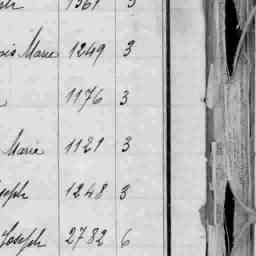 1361 3
ois Marie 1249 3
1176 3
Marie 1121 3
oseph 1248 3
Joseph 2782 6